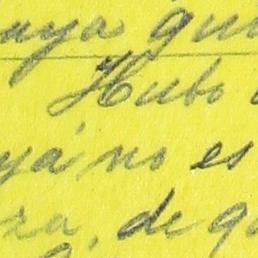 aya qu
Hubo
ya no es
za, de q